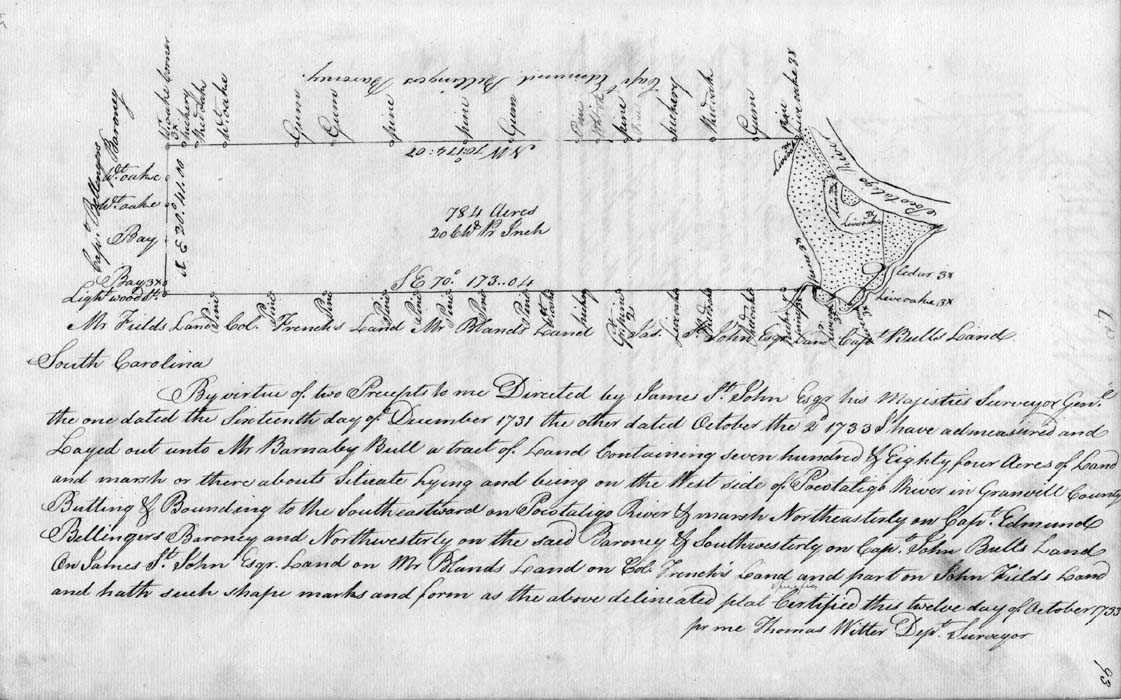 Capt. Edmund Bellingers Baroney.
Capt. Bellingers Baroney
Wt. oake Corner 3x
hickery
Red oak
Wt. oake
Gum
Gum
pine
pine
Gum
Pine
pine
hickery
Red oak
Gum
pine
live oake 3x
N W 70° 174:07
Wt. oake
Wt. oake
Bay
Bay 3x
Light wood St.
N. E 20° 41.00
784 Acres
20 Chs. Pr Inch
S E 70° 173..04
Pocotaligo River
Live oake
pine 3x
Cedar 3x
Live oake 3x
Pine
Pine
Pine
Pine
Pine
Pine
Pine
Pine
Wt. oake
hickery
pine
Live oake
Red oak
Mr. Fields Land Col. Frenchs Land Mr Blands Land Jas. St. John Esqr. Land Capt. Bulls Land.
South Carolina
By virtue of two Precepts to me Directed by James St. John Esqr his Majesties Surveyor Genl.
the one dated the Sixteenth day of December 1731 the other dated October the 2d 1733 I have admeasured and
Layed out unto Mr Barnaby Bull a tract of Land Containing seven hundred & Eighty four Acres of Land
and marsh or there abouts Situate Lying and being on the West side of Pocotaligo River in Granvill County
Butting & Bounding to the Southeastward on Pocotaligo River & marsh Northeasterly on Capt. Edmund
Bellingers Baroney and Northwesterly on the said Baroney & Southwesterly on Capt. John Bulls Land
On James St. John Esqr. Land on Mr Blands Land on Col. French's Land and part on John Fields Land
and hath such shape marks and form as the above delineated plat Certified this twelve day of October 1733
pr me Thomas Witter Dept. Surveyor
93